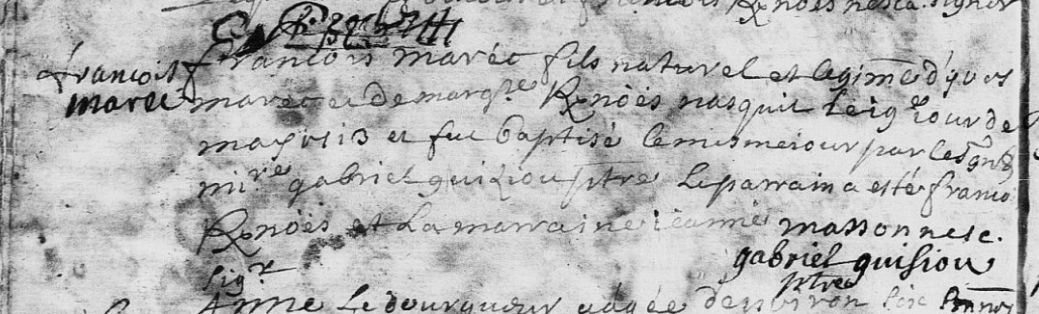 francois Marec
francois marec fils naturel et legime d'yves
marec et de margte Knöes nasquit le 19e iour de
may 1713 et fut baptisé le mesme iour par le sgné
mire gabriel quiziou ptre Le parrain a esté franco
Knöes et La marraine ieanne massonnesc.
gabriel quisiou
ptre
sigr
Anne Le dourgueur aagée d'environ